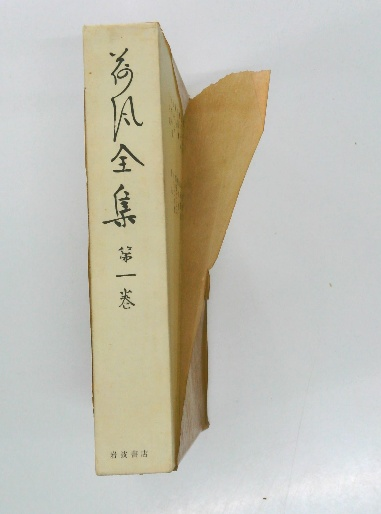 荷风全集
第一巻
岩波書店